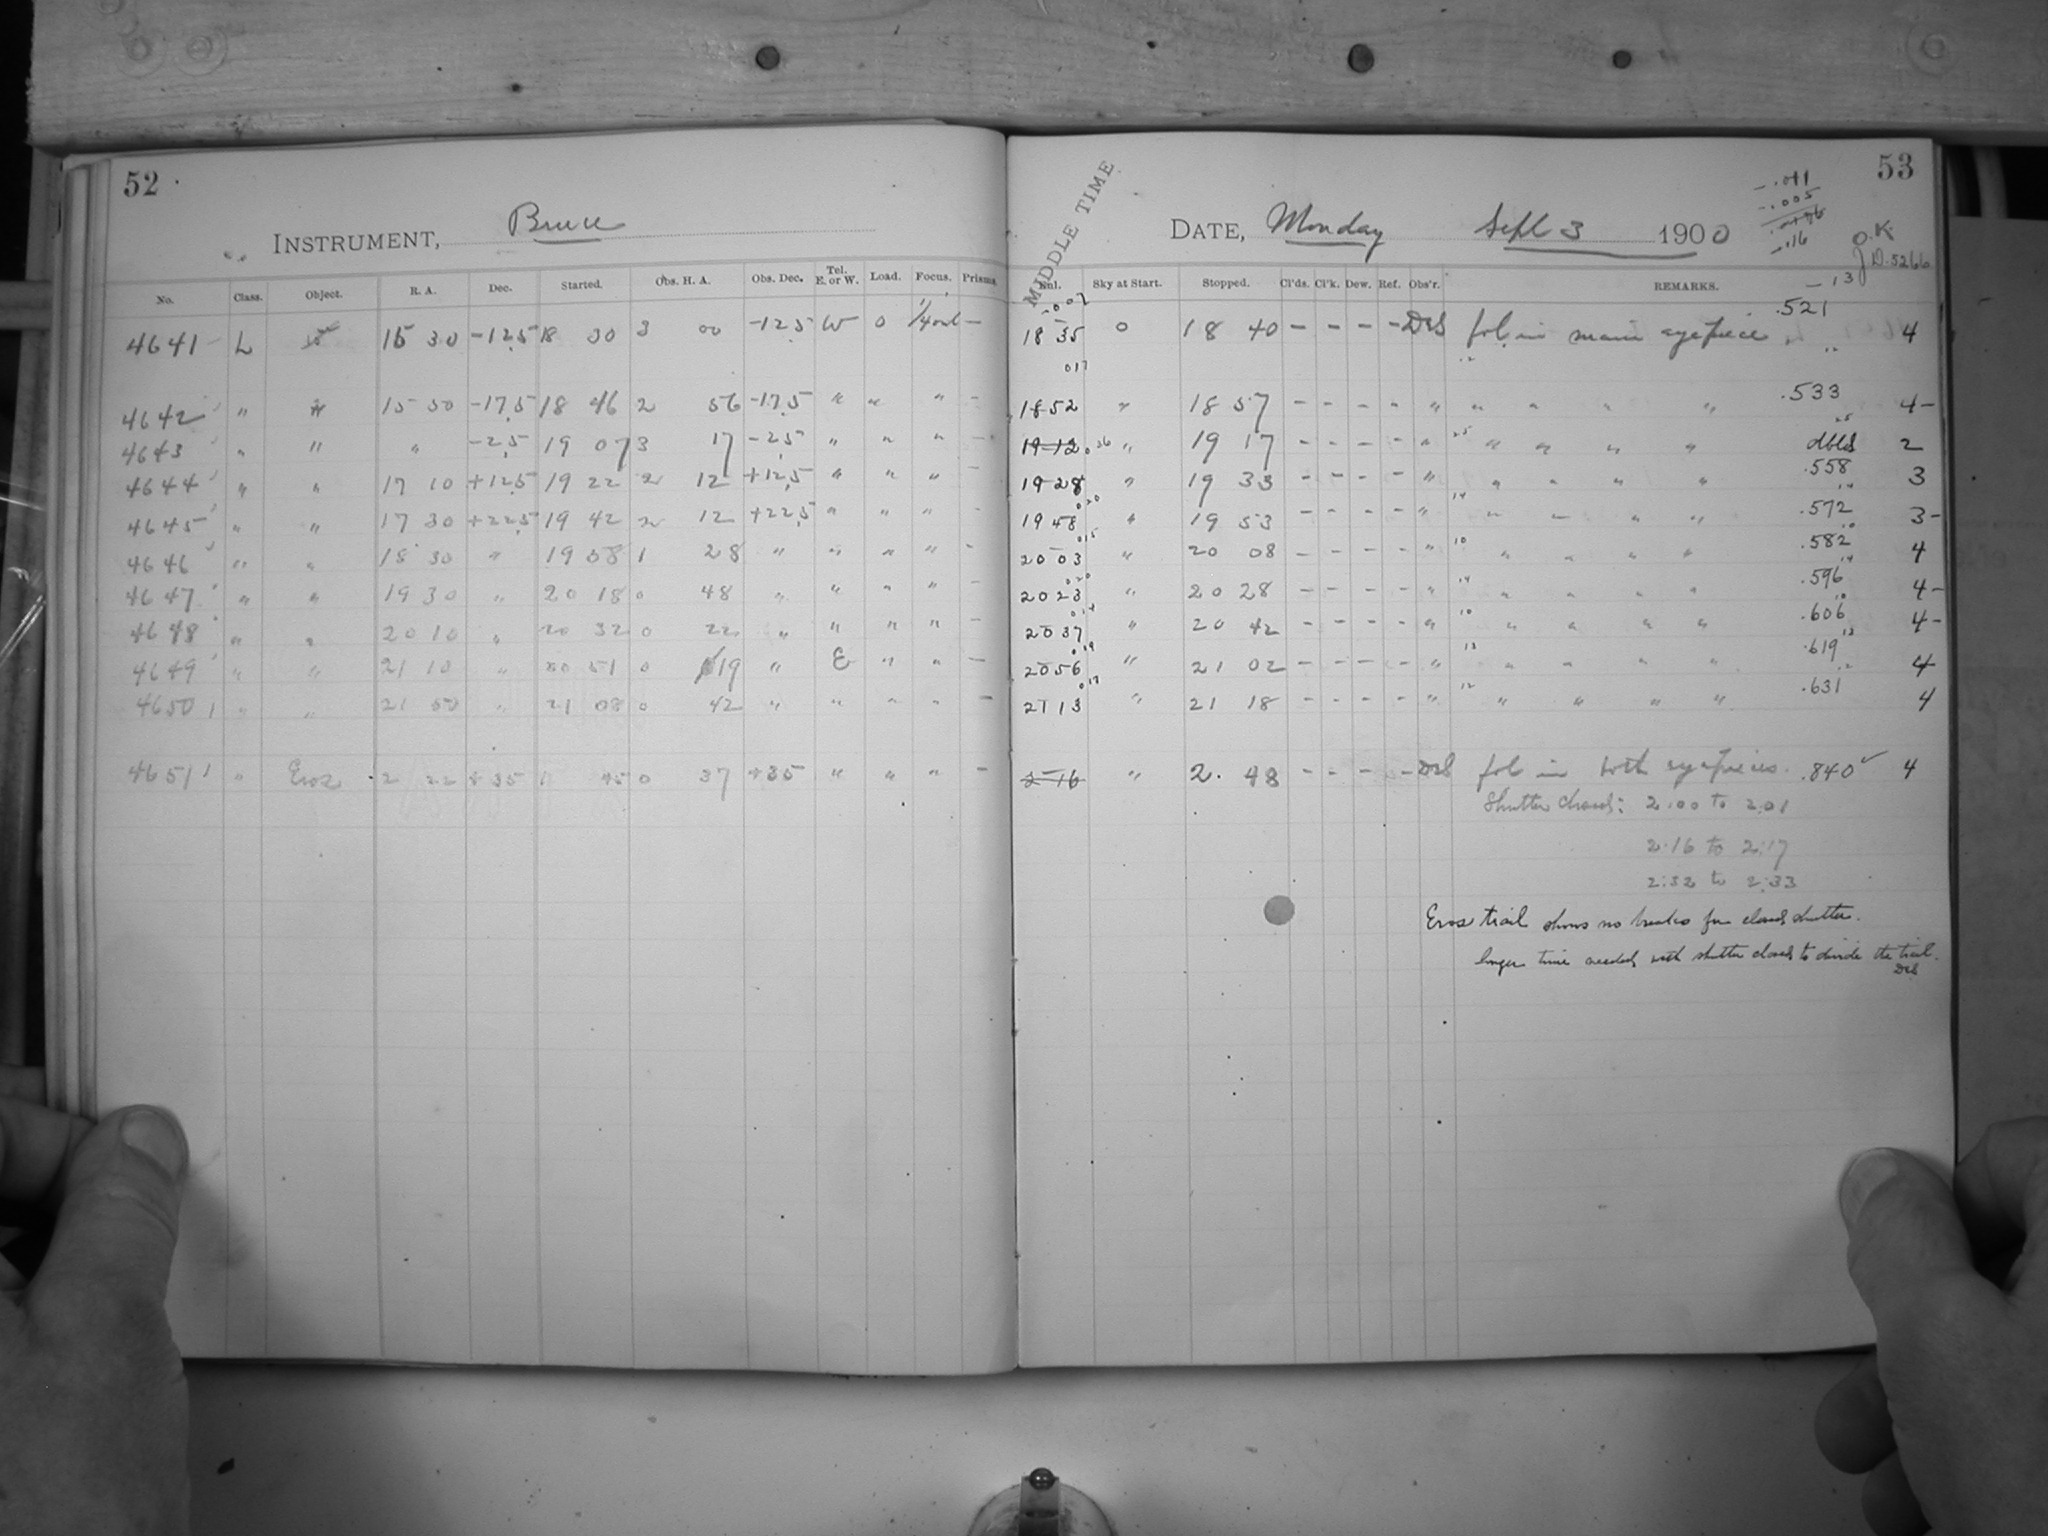 52
INSTRUMENT, Bruce
No. Class. Object. R. A. Dec. Started. Obs. H. A. Obs. Dec. Tel. E. or W. Load. Focus. Prisms.
4641 L 15 30 -12.5 18 30 3 00 -12.5 W 0 1/4 out —
4642 " 15 50 -17.5 18 46 2 56 -17.5 " " " -
4643 " " " -2.5 19 07 3 17 -2.5 " " " -
4644 " " 17 10 +12.5 19 22 2 12 +12.5 " " " -
4645 " " 17 30 +22.5 19 42 2 12 +22.5 " " " -
4646 " " 18 30 " 19 58 1 28 " " " " -
4647 " " 19 30 " 20 18 0 48 " " " " -
4648 " " 20 10 " 20 32 0 22 " " " " -
4649 " " 21 10 " 20 51 0 19 " E " " —
4650 " " 21 50 " 21 08 0 42 " " " " —
4651 " Eros 2 22 +35 1 45 0 37 +35 " " " -
53
MIDDLE TIME
DATE, Monday Sept 3 1900
-.011
-.005
-.116
O.K.
J.D. 5266
-13
Sky at Start. Stopped. Cl'ds. Cl'k. Dew. Ref. Obs'r. REMARKS.
18 35 0 18 40 - - - - DeS fol. in main eyepiece .521 4
017
18 52 " 18 57 - - - - " " " " " .533 4-
19 12 " 19 17 - - - - " " " " " dbld 2
19 28 " 19 33 - - - - " " " " " .558 3
19 48 " 19 53 - - - - " " " " " .572 3-
20 03 " 20 08 - - - - " " " " " .582 4
20 23 " 20 28 - - - - " " " " " .596 4-
20 37 " 20 42 - - - - " " " " " .606 4-
20 56 " 21 02 - - - - " " " " " .619 4
21 13 " 21 18 - - - - " " " " " .631 4
2 16 " 2. 48 - - - - DeS fol in both eyepieces. .840 ✓ 4
Shutter closed: 2:00 to 2:01
2:16 to 2:17
2:32 to 2:33
Eros trail shows no breaks for closed shutter.
longer time needed with shutter closed to divide the trail.
DeS